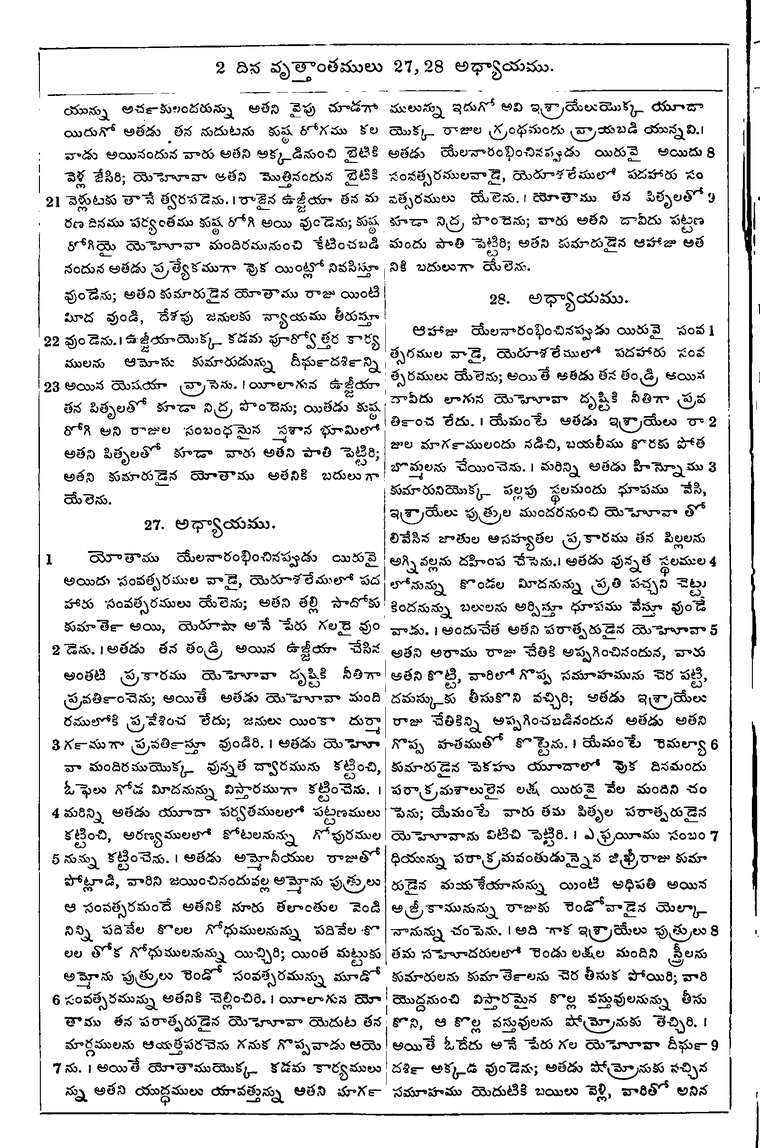 2 దిన వృత్తాంతములు 27, 28 అధ్యాయము.
యున్ను అర్చకులందరున్ను అతని వైపు చూడగా
యిదుగో అతడు తన నుదుటను కుష్ఠ రోగము కల
వాడు అయినందున వారు అతని అక్కడినుంచి బైటికి
వెళ్ల జేసిరి; యెహోవా అతని మొత్తినందున బైటికి
21 వెళ్లుటకు తానే త్వరపడెను. । రాజైన ఉజ్జీయా తన మ
రణ దినము పర్యంతము కుష్ఠ రోగి అయి వుండెను; కుష్ఠ
రోగియై యెహోవా మందిరమునుంచి కేటించబడి
నందున అతడు ప్రత్యేకముగా వొక యింట్లో నివసిస్తూ
వుండెను; అతని కుమారుడైన యోతాము రాజు యింటి
మీద వుండి, దేశపు జనులకు న్యాయము తీరుస్తూ
22 వుండెను. । ఉజ్జీయాయొక్క కడమ పూర్వోత్తర కార్య
ములను ఆమోసు కుమారుడున్ను దీర్ఘదర్శిన్ని
23 అయిన యెషయా వ్రాసెను. । యీలాగున ఉజ్జీయా
తన పితృలతో కూడా నిద్ర పొందెను; యితడు కుష్ఠ
రోగి అని రాజుల సంబంధమైన స్మశాన భూమిలో
అతని పితృలతో కూడా వారు అతని పాతి పెట్టిరి;
అతని కుమారుడైన యోతాము అతనికి బదులుగా
యేలెను.
27. అధ్యాయము.
1 యోతాము యేలనారంభించినప్పుడు యిరువై
అయిదు సంవత్సరముల వాడై, యెరూశలేములో పద
హారు సంవత్సరములు యేలెను; అతని తల్లి సాదోకు
కుమార్తె అయి, యెరూషా అనే పేరు గలదై వుం
2 డెను. । అతడు తన తండ్రి, అయిన ఉజ్జీయా చేసిన
అంతటి ప్రకారము యెహోవా దృష్టికి నీతిగా
ప్రవర్తించెను; అయితే అతడు యెహోవా మంది
రములోకి ప్రవేశించ లేదు; జనులు యింకా దుర్మా
3 ర్గముగా ప్రవర్తిస్తూ వుండిరి. । అతడు యెహో
వా మందిరముయొక్క వున్నత ద్వారమును కట్టించి,
ఓఫెలు గోడ మీదనున్ను విస్తారముగా కట్టించెను. ।
4 మరిన్ని అతడు యూదా పర్వతములలో పట్టణములు
కట్టించి, అరణ్యములలో కోటలనున్ను గోపురముల
5 నున్ను కట్టించెను. । అతడు అమ్మోనీయుల రాజుతో
పోట్లాడి, వారిని జయించినందువల్ల అమ్మోను పుత్రులు
ఆ సంవత్సరమందే అతనికి నూరు తలాంతుల వెండి
నిన్ని పదివేల కొలల గోధుములనున్ను పదివేల కొ
లల తోక గోధుములనున్ను యిచ్చిరి; యింత మట్టుకు
అమ్మోను పుత్రులు రెండో సంవత్సరమున్ను మూడో
6 సంవత్సరమున్ను అతనికి చెల్లించిరి. । యీలాగున యో
తాము తన పరాత్పరుడైన యెహోవా యెదుట తన
మార్గములను ఆయత్తపరచెను గనుక గొప్పవాడు ఆయె
7 ను. । అయితే యోతాముయొక్క కడమ కార్యములు
న్ను అతని యుద్ధములు యావత్తున్ను అతని మార్గ
ములున్ను ఇదుగో అవి ఇశ్రాయేలుయొక్క యూదా
యొక్క రాజుల గ్రంథమందు వ్రాయబడి యున్నవి. ।
అతడు యేలనారంభించినప్పుడు యిరువై అయిదు 8
సంవత్సరములవాడై, యెరూశలేములో పదహారు సం
వత్సరములు యేలెను. । యోతాము తన పితృలతో 9
కూడా నిద్ర పొందెను; వారు అతని దావీదు పట్టణ
మందు పాతి పెట్టిరి; అతని కుమారుడైన ఆహాజు అత
నికి బదులుగా యేలెను.
28. అధ్యాయము.
ఆహాజు యేలనారంభించినప్పుడు యిరువై సంవ 1
త్సరముల వాడై, యెరూశలేములో పదహారు సంవ
త్సరములు యేలెను; అయితే అతడు తన తండ్రి, అయిన
దావీదు లాగున యెహోవా దృష్టికి నీతిగా ప్రవ
ర్తించ లేదు. । యేమంటే అతడు ఇశ్రాయేలు రా 2
జుల మార్గములందు నడిచి, బయలీము కొరకు పోత
బొమ్మలను చేయించెను. । మరిన్ని అతడు హిన్నోము 3
కుమారునియొక్క పల్లపు స్థలమందు ధూపము వేసి,
ఇశ్రాయేలు పుత్రుల ముందరనుంచి యెహోవా తో
లివేసిన జాతుల అసహ్యతల ప్రకారము తన పిల్లలను
అగ్నివల్లను దహింప చేసెను. । అతడు వున్నత స్థలముల 4
లోనున్ను కొండల మీదనున్ను ప్రతి పచ్చని చెట్టు
కిందనున్ను బలులను అర్పిస్తూ ధూపము వేస్తూ వుండే
వాడు. । అందుచేత అతని పరాత్పరుడైన యెహోవా 5
అతని అరాము రాజు చేతికి అప్పగించినందున, వారు
అతని కొట్టి, వారిలో గొప్ప సమూహమును చెర పట్టి,
దమస్కుకు తీసుకొని వచ్చిరి; అతడు ఇశ్రాయేలు
రాజు చేతికిన్ని అప్పగించబడినందున అతడు అతని
గొప్ప హతముతో కొట్టెను. । యేమంటే రెమల్యా 6
కుమారుడైన పెకహు యూదాలో వొక దినమందు
పరాక్రమశాలులైన లక్ష యిరువై వేల మందిని చం
పెను; యేమంటే వారు తమ పితృల పరాత్పరుడైన
యెహోవాను విటిచి పెట్టిరి. । ఎఫ్రయీము సంబం 7
ధియున్ను పరాక్రమవంతుడున్నైన జిఖ్రీ రాజు కుమా
రుడైన మయశేయానున్ను యింటి అధిపతి అయిన
అజ్రీకామునున్ను రాజుకు రెండోవాడైన యెల్కా
నానున్ను చంపెను. । అది గాక ఇశ్రాయేలు పుత్రులు 8
తమ సహోదరులలో రెండు లక్షల మందిని స్త్రీలను
కుమారులను కుమార్తెలను చెర తీసుక పోయిరి; వారి
యొద్దనుంచి విస్తారమైన కొల్ల వస్తువులనున్ను తీసు
కొని, ఆ కొల్ల వస్తువులను షోమ్రోనుకు తెచ్చిరి. ।
అయితే ఓదేదు అనే పేరు గల యెహోవా దీర్ఘ 9
దర్శి అక్కడ వుండెను; అతడు షోమ్రోనుకు వచ్చిన
సమూహము యెదుటికి బయలు వెళ్లి, వారితో అనిన